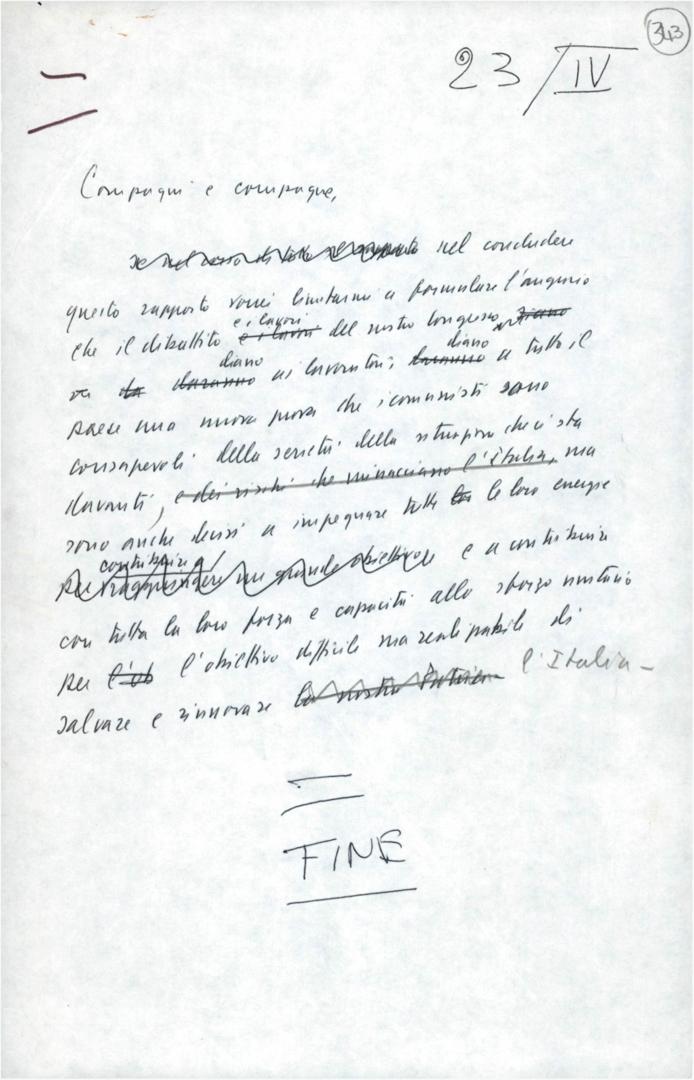 343
23/IV
Compagni e compagne,
nel concludere
questo rapporto vorrei limitarmi a formulare l'augurio
che il dibattito e i lavori del nostro Congresso
diano ai lavoratori, diano a tutto il
paese una nuova prova che i comunisti sono
consapevoli della serietà della situazione che ci sta
davanti, e dei rischi che minacciano l'Italia, ma
sono anche decisi a impegnare tutte le loro energie
contribuire
per raggiungere un grande obiettivo e a contribuire
con tutta la loro forza e capacità allo sforzo unitario
per l'ob l'obiettivo difficile ma realizzabile di
salvare e rinnovare la nostra l'Italia -
FINE